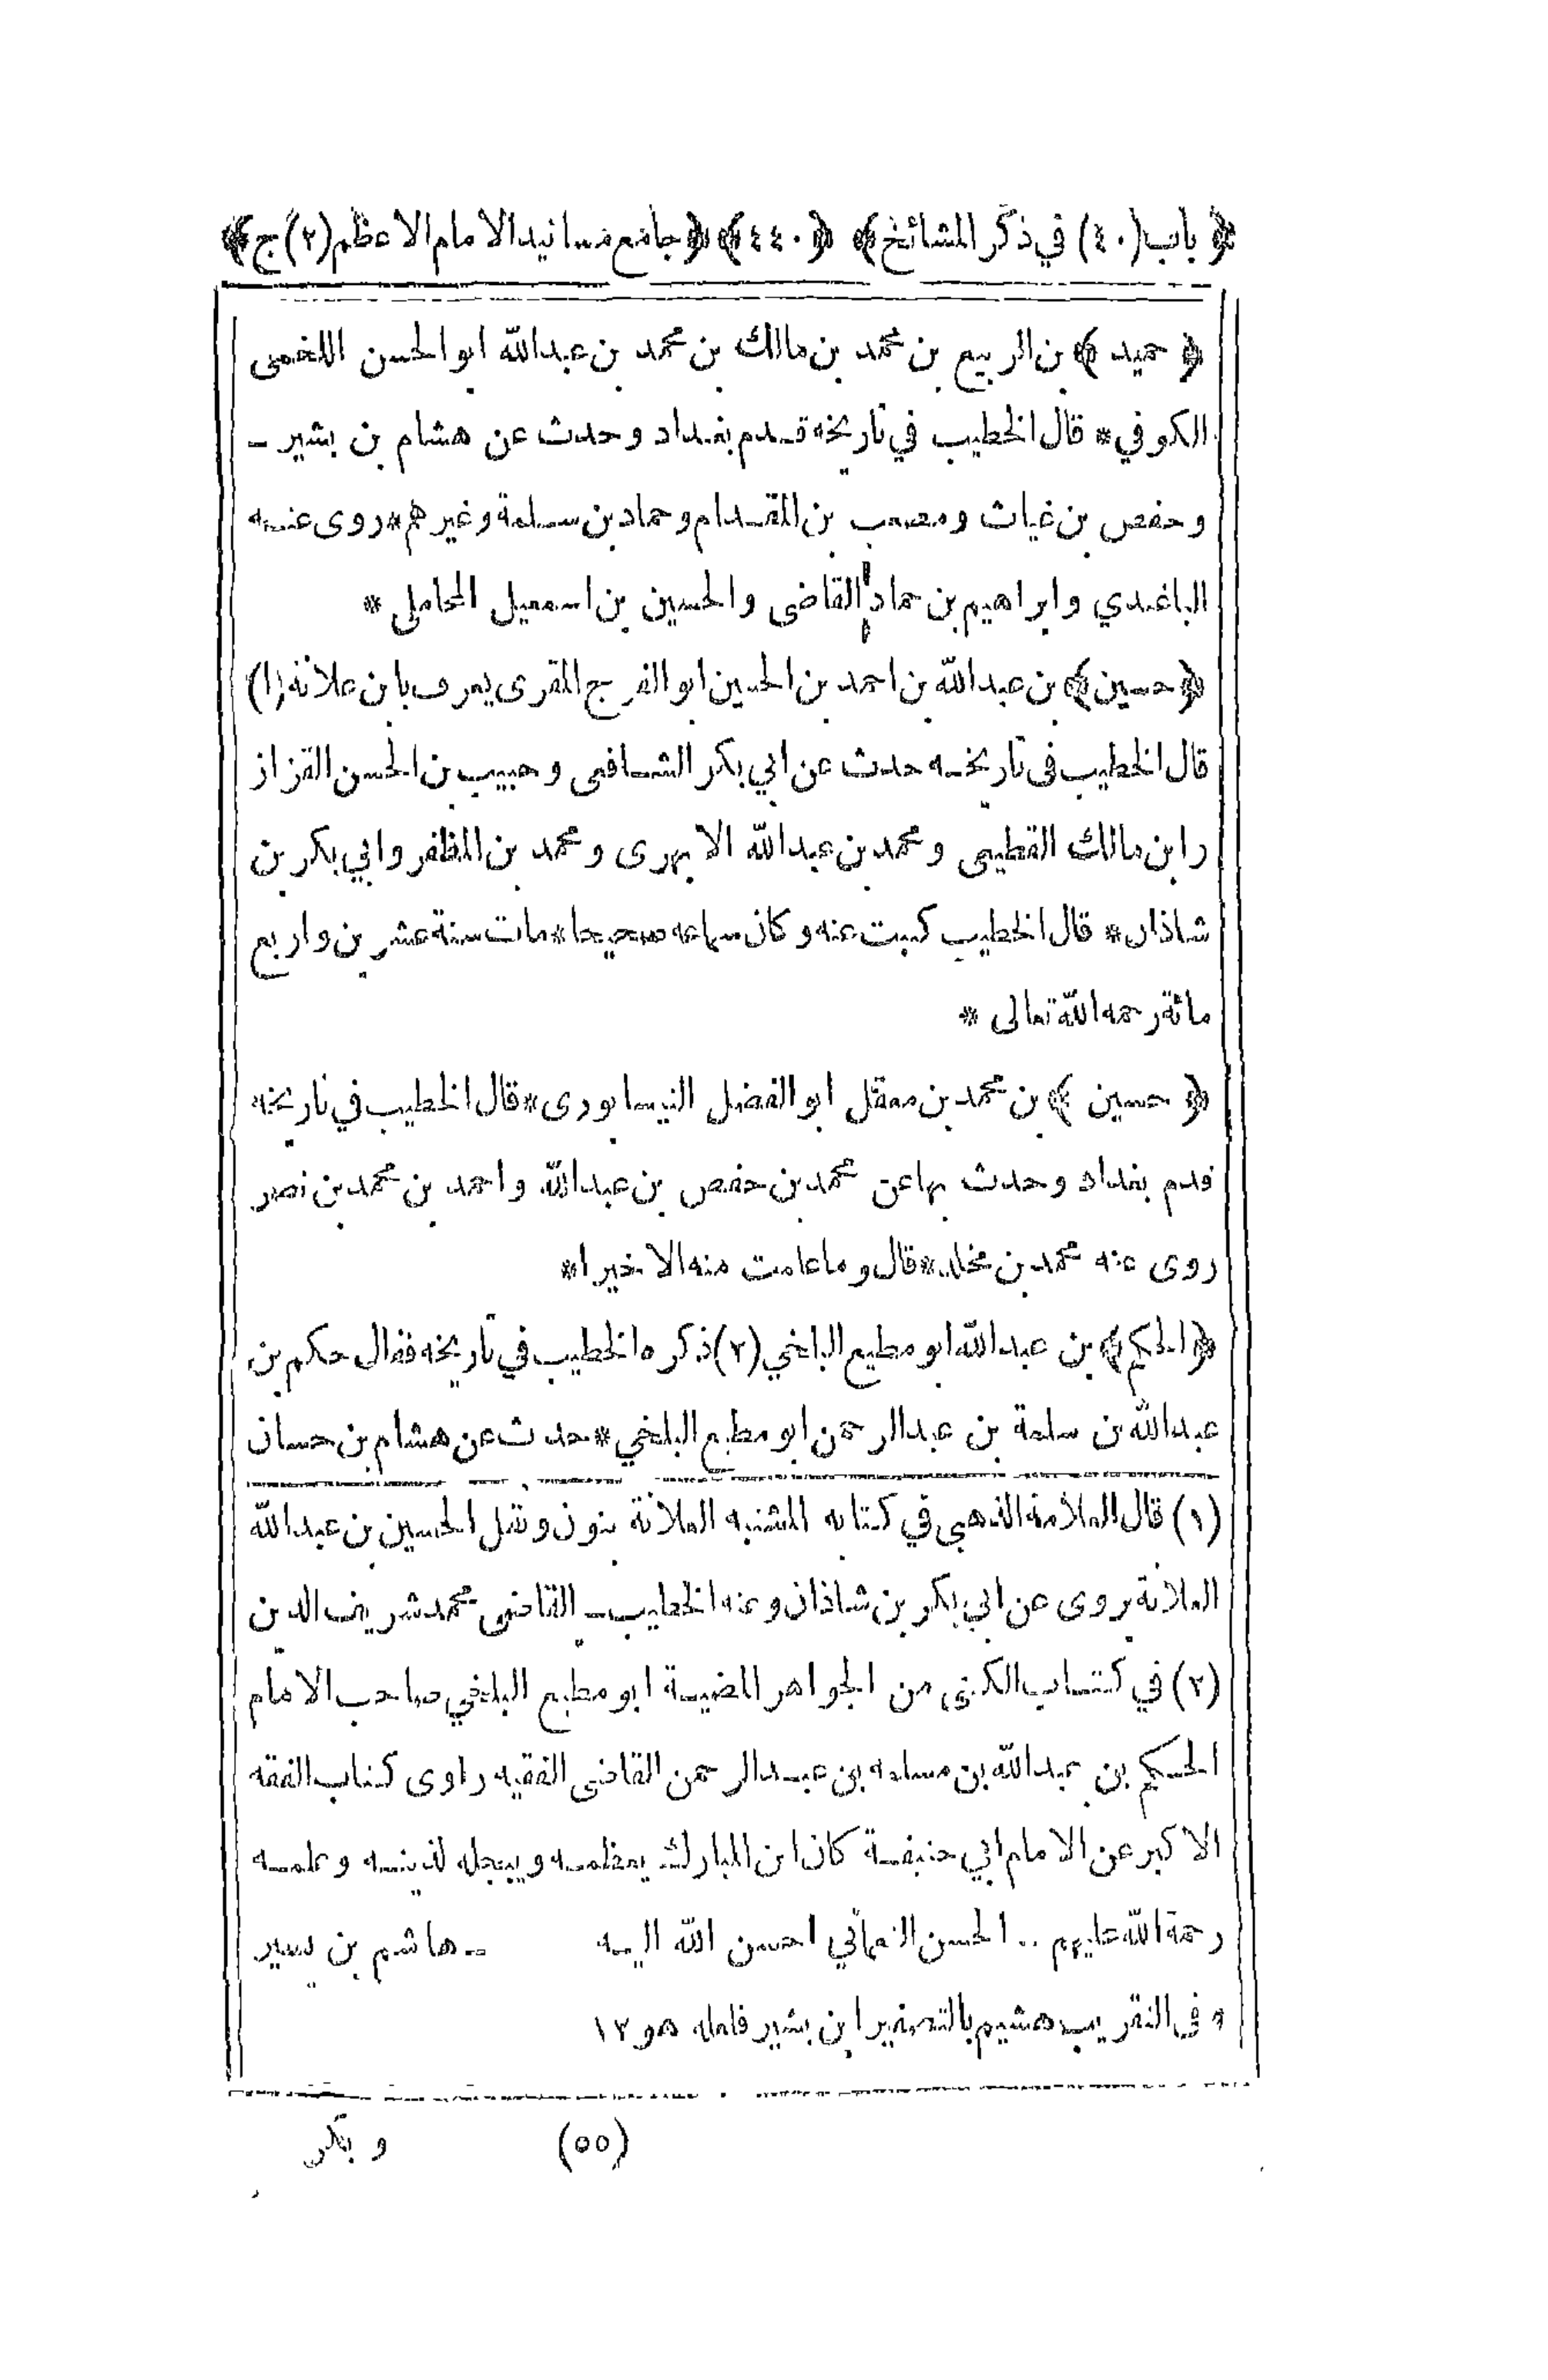 ﴿ باب (٤٠) في ذكر المشائخ ﴾ ﴿ ٤٤٠ ﴾ ﴿ جامع مسانيد الامام الاعظم (٢) ج ﴾
﴿ حميد ﴾ بن الربيع بن محمد بن مالك بن محمد بن عبدالله ابو الحسن اللخمى
الكوفي * قال الخطيب في تاريخه قدم بغداد وحدث عن هشام بن بشير ـ
وحفص بن غياث ومصعب بن المقدام وحماد بن سلمة وغيرهم * روى عنه
الباغندي وابراهيم بن حماد القاضى والحسين بن اسمعيل المحاملى *
﴿ حسين ﴾ بن عبدالله بن احمد بن الحسين ابو الفرج المقرى يعرف بابن علانة (١)
قال الخطيب فى تاريخه حدث عن ابي بكر الشافعى وحبيب بن الحسن القزاز
وابن مالك القطيعى ومحمد بن عبدالله الابهرى ومحمد بن المظفر وابي بكر بن
شاذان * قال الخطيب كتبت عنه وكان سماعه صحيحا * مات سنة عشرين واربع
مائة رحمه الله تعالى *
﴿ حسين ﴾ بن محمد بن معقل ابو الفضل النيسابورى * قال الخطيب في تاريخه
قدم بغداد وحدث بها عن محمد بن حفص بن عبدالله واحمد بن محمد بن نصر
روى عنه محمد بن مخلد * قال وما علمت منه الا خيرا *
﴿ الحكم ﴾ بن عبدالله ابو مطيع البلخي (٢) ذكره الخطيب في تاريخه فقال حكم بن
عبدالله بن سلمة بن عبدالرحمن ابو مطيع البلخي * حدث عن هشام بن حسان
(١) قال العلامة الذهبى في كتابه المشتبه العلانة بنون وثقل الحسين بن عبدالله
العلانة يروى عن ابي بكر بن شاذان وعنه الخطيب ـ القاضى محمد شريف الدين
(٢) في كتاب الكنى من الجواهر المضية ابو مطيع البلخي صاحب الامام
الحكم بن عبدالله بن مسلمه بن عبدالرحمن القاضى الفقيه راوى كتاب الفقه
الاكبر عن الامام ابي حنيفة كان ابن المبارك يعظمه ويبجله لدينه وعلمه
رحمة الله عليهم .. الحسن النعماني احسن الله اليه ـ هاشم بن بسير
فى التقريب هشيم بالتصغير ابن بشير فلعله هو ١٢
(٥٥) وبكر